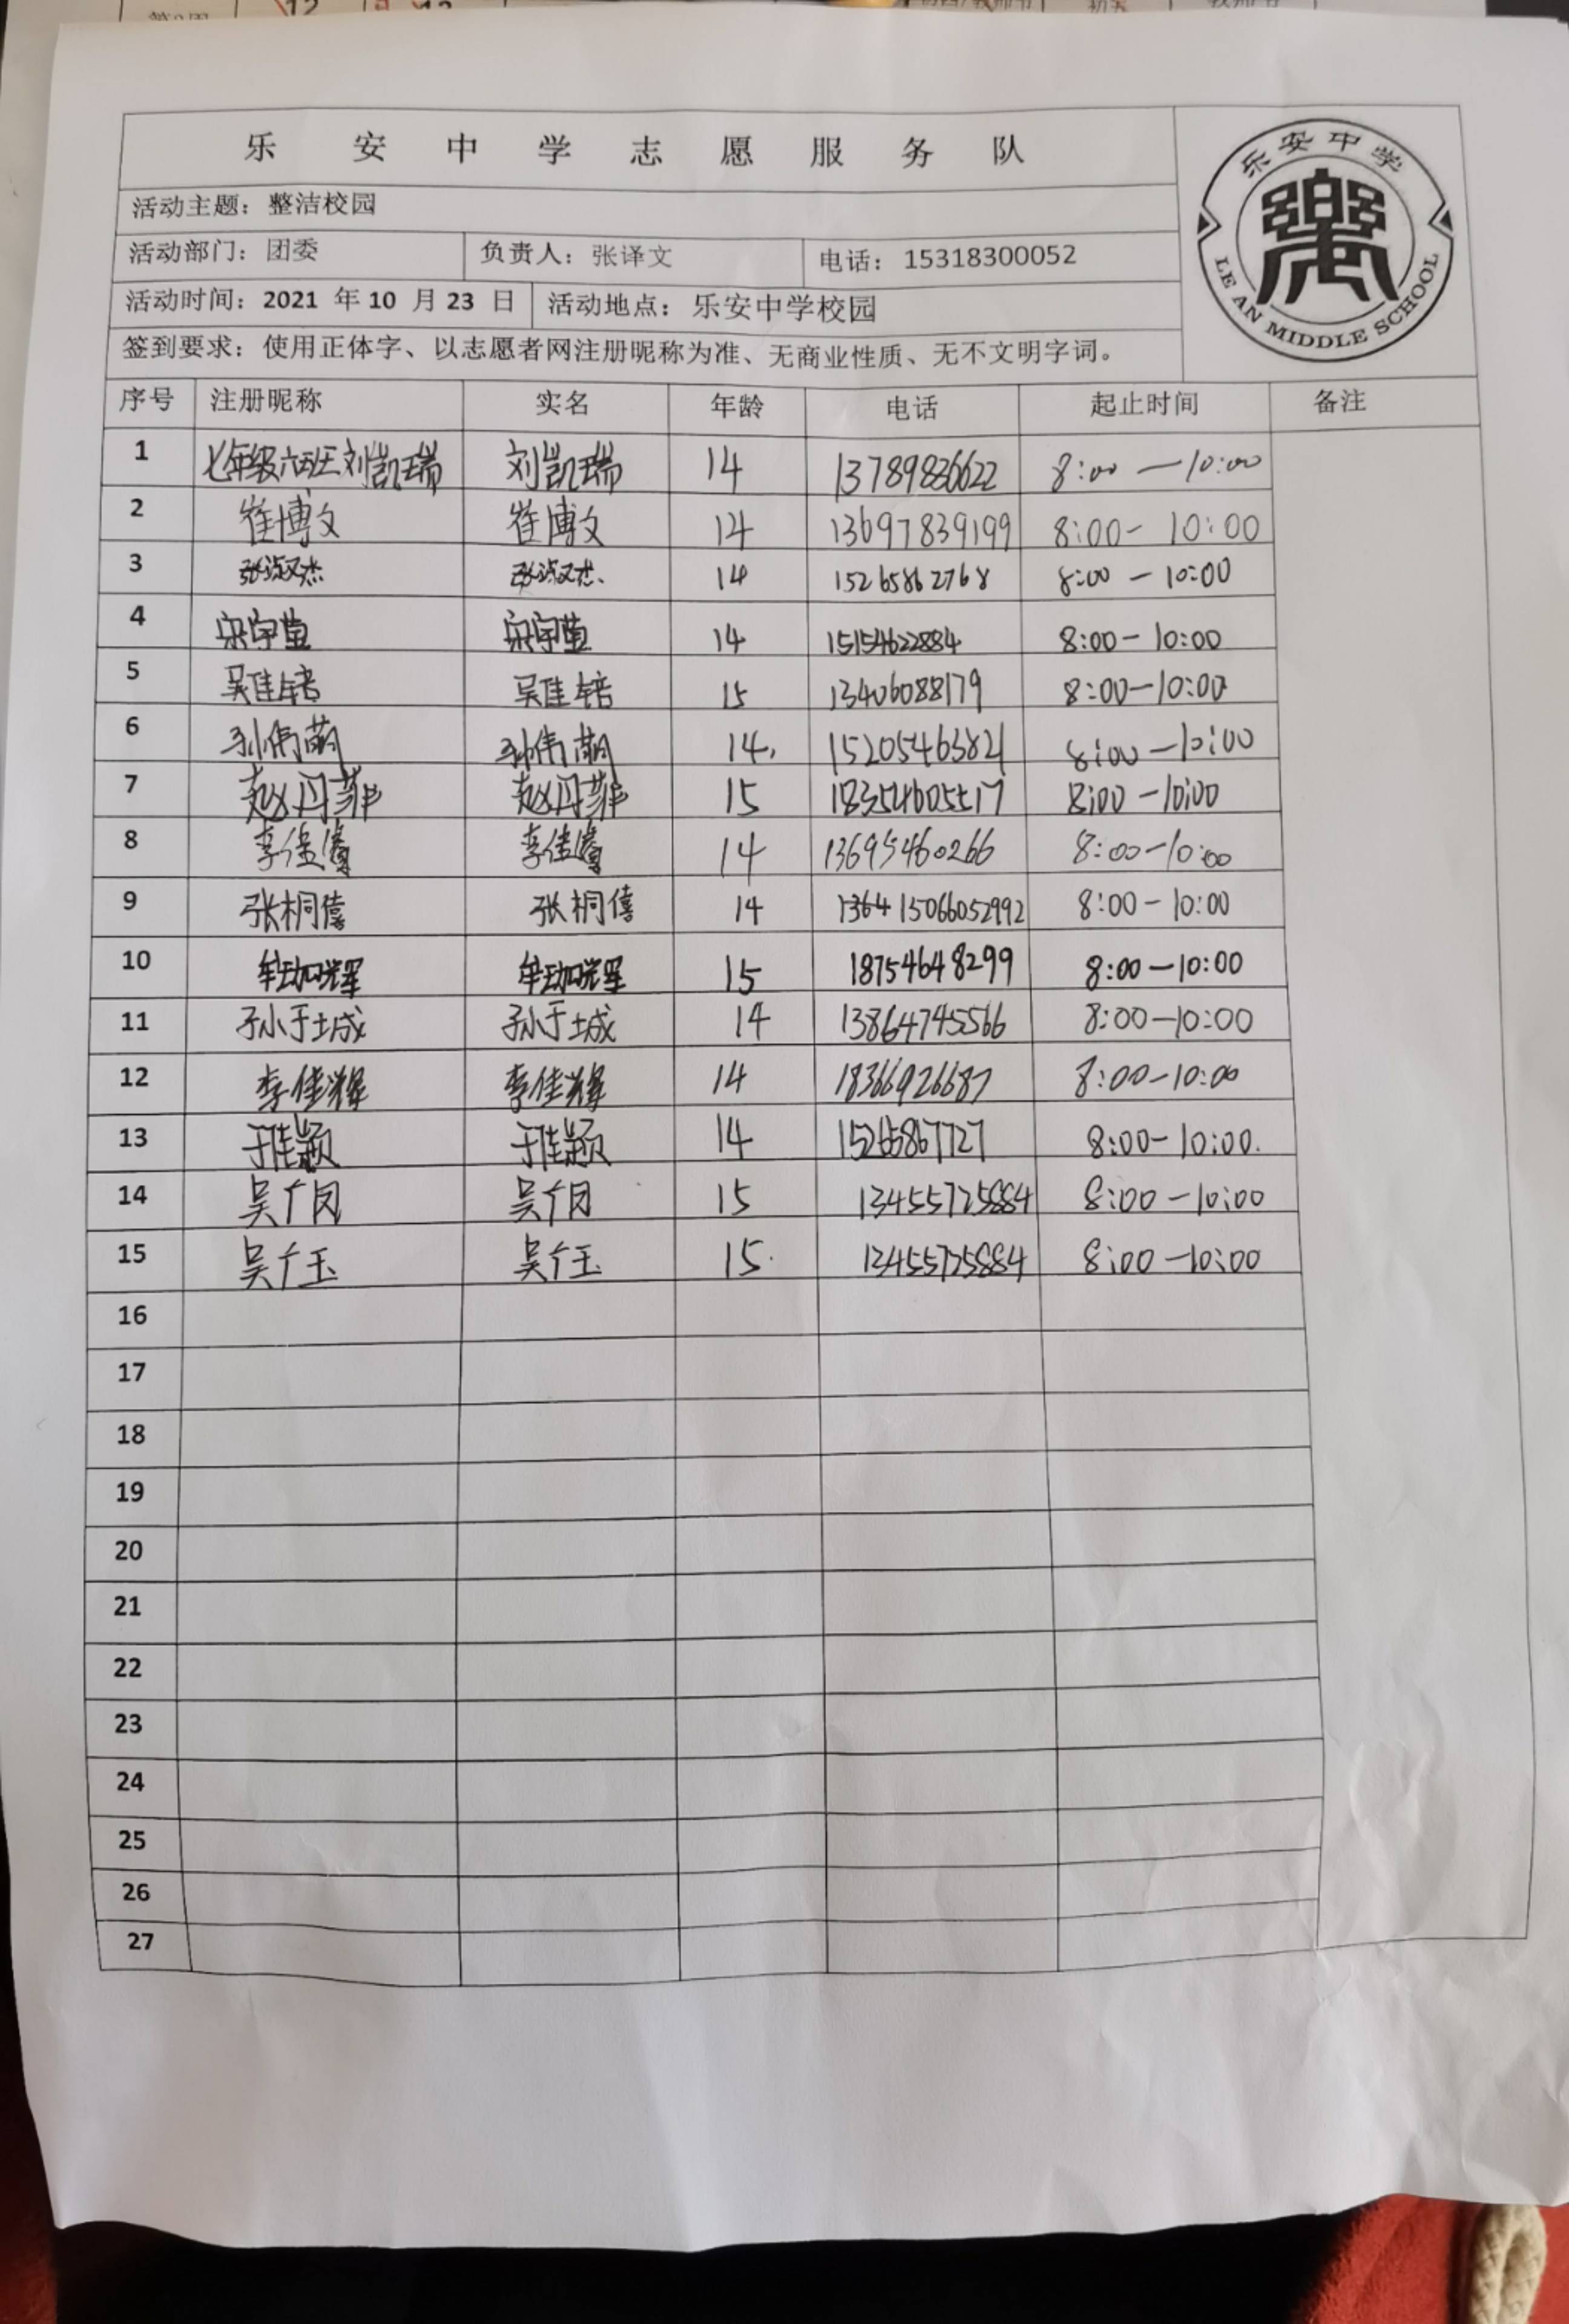 乐安中学志愿服务队
乐安中学
LE AN MIDDLE SCHOOL
活动主题：整洁校园
活动部门：团委 负责人：张译文 电话：15318300052
活动时间：2021 年 10 月 23 日 活动地点：乐安中学校园
签到要求：使用正体字、以志愿者网注册昵称为准、无商业性质、无不文明字词。
序号 注册昵称 实名 年龄 电话 起止时间 备注
1 七年级六班王刘凯瑞 刘凯瑞 14 13789836622 8:00—10:00
2 崔博文 崔博文 14 13697839199 8:00-10:00
3 14 15265862768 8:00-10:00
4 宋宇萱 宋宇萱 14 15154622884 8:00-10:00
5 吴佳锫 吴佳锫 15 13406088179 8:00-10:00
6 孙伟萌 孙伟萌 14 15205463821 8:00-10:00
7 赵丹菲 赵丹菲 15 18354605517 8:00-10:00
8 14 13695460266 8:00-10:00
9 张桐僖 张桐僖 14 15066052992 8:00-10:00
10 15 18754648299 8:00-10:00
11 孙于城 孙于城 14 13864745566 8:00-10:00
12 李佳辉 李佳辉 14 18366926687 8:00-10:00
13 于佳颖 于佳颖 14 15265867727 8:00-10:00.
14 吴广凤 吴广凤 15 13455725884 8:00-10:00
15 吴广玉 吴广玉 15 13455725884 8:00-10:00
16
17
18
19
20
21
22
23
24
25
26
27